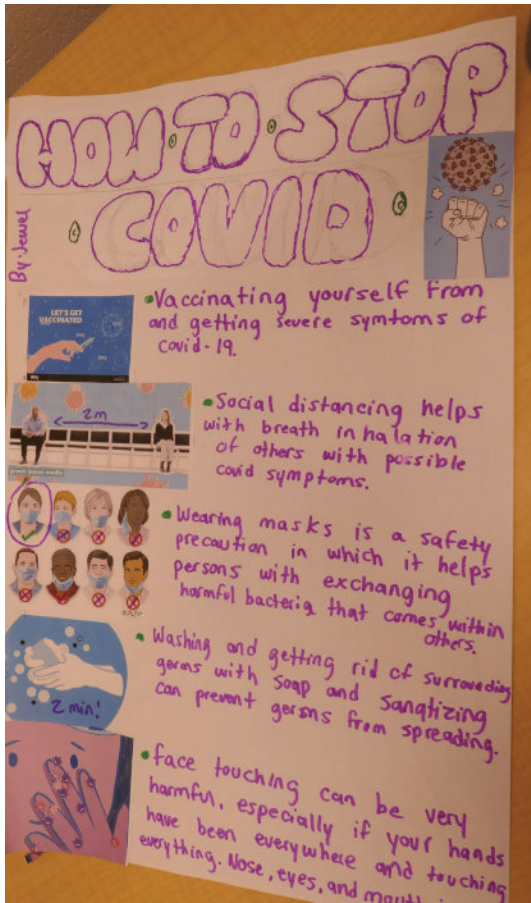 HOW TO STOP
COVID
By: Jewel
LET'S GET
VACCINATED
• Vaccinating yourself from
and getting severe symtoms of
covid-19.
2m
• Social distancing helps
with breath inhalation
of others with possible
covid symptoms.
• Wearing masks is a safety
precaution in which it helps
persons with exchanging
harmful bacteria that comes within
others.
• Washing and getting rid of surrounding
germs with soap and sanatizing
can prevent germs from spreading.
2 min!
• face touching can be very
harmful, especially if your hands
have been everywhere and touching
everything. Nose, eyes, and mouth